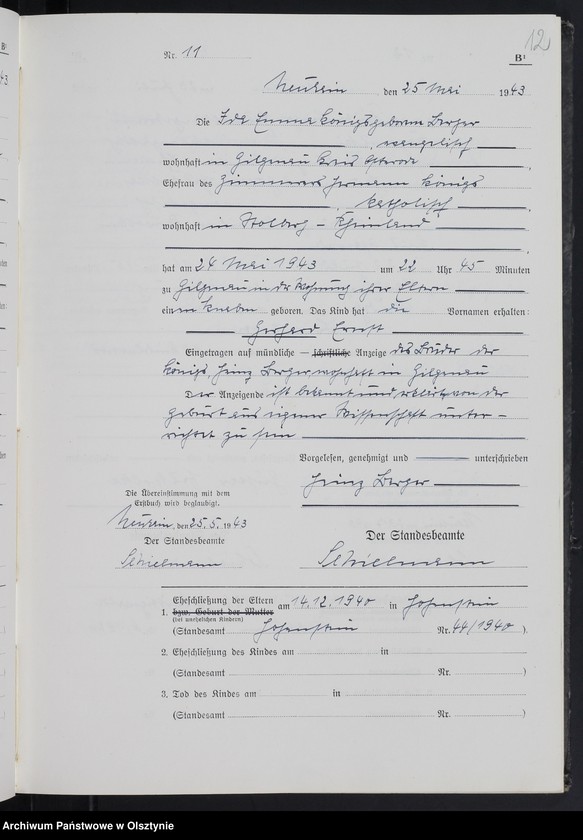 12
B¹
Nr. 11
den 25 Mai 1943
Die Ida Emma Königs geborene Berger
, evangelisch
wohnhaft in Gilgenau Kreis Osterode ,
Ehefrau des Zimmerers Hermann Königs
, katholisch
wohnhaft in Stolberg - Rheinland
,
hat am 24 Mai 1943 um 22 Uhr 45 Minuten
zu Gilgenau in der Wohnung ihrer Eltern
einen Knaben geboren. Das Kind hat die Vornamen erhalten:
Gerhard Ernst
Eingetragen auf mündliche — schriftliche Anzeige des Bruder der
Königs, Heinz Berger wohnhaft in Gilgenau
Der Anzeigende ist bekannt und erklärt von der
Geburt aus eigener Wissenschaft unter-
richtet zu sein
Vorgelesen, genehmigt und unterschrieben
Heinz Berger
Die Übereinstimmung mit dem
Erstbuch wird beglaubigt.
, den 25.5. 1943
Der Standesbeamte
Der Standesbeamte
1. Eheschließung der Eltern
bzw. Geburt der Mutter
(bei unehelichen Kindern)
am 14.12.1940 in Hohenstein
(Standesamt Hohenstein Nr. 44/1940 ).
2. Eheschließung des Kindes am in
(Standesamt Nr. )
3. Tod des Kindes am in
(Standesamt Nr. )
Archiwum Państwowe w Olsztynie